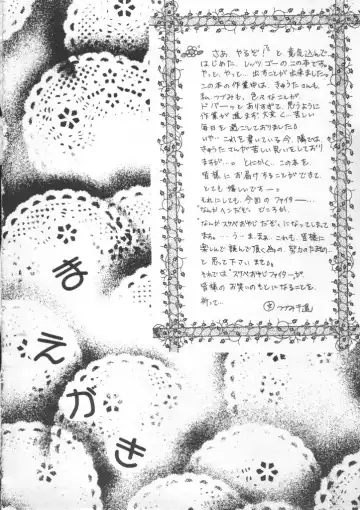 さぁ、やるぞ!!と意気込んで
はじめた、レッツゴーのこの本です。
やっと、やっと…出すことが出来ました。
この本の作業中は、きゅうたさんも
私、つづみも、色々なことが
ドバーっとありすぎて、思うように
作業が進まず大変く…苦しい
毎日を過ごしておりました。
いや…これを書いている今、隣では
きゅうたさんが苦しい戦いをしており
ますが…。とにかく、この本を、
皆様にお届けすることができて、
とても嬉しいですー。
それにしても、今回のファイター…
"なんかヘンだぞ"どころか、
"なんかスケベおやじだぞ"になってしまって
ます。…うーまぁ、これも、皆様に
楽しんで読んで頂く為の、努力のためのもの
と思って下さいませ。
それでは"スケベおやじファイター"が
皆様のお笑いのもとになることを、
祈って…
つづみ千遥
まえがき